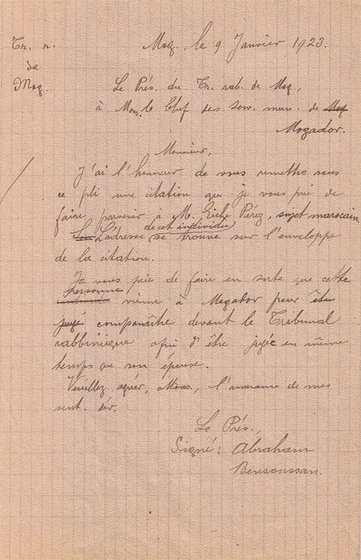 Tr. r.
de
Mog.
Mog., le 9 Janvier 1923.
Le Prés. du Tr. rab. de Mog.,
à Mons. le Chef des Serv. mun. de Mog
Mogador.
Monsieur,
J'ai l'honneur de vous remettre sous
ce pli une citation que je vous prie de
faire parvenir à M. Pérez, sujet marocain.
L'adresse de cet individu se trouve sur l'enveloppe
de la citation.
Je vous prie de faire en sorte que cette
personne vienne à Mogador pour être
jugé comparaître devant le Tribunal
rabbinique afin d'être jugée en même
temps que son épouse.
Veuillez agréer, Mons., l'assurance de mes
sent. dév.
Le Prés.,
Signé: Abraham
Bensoussan.